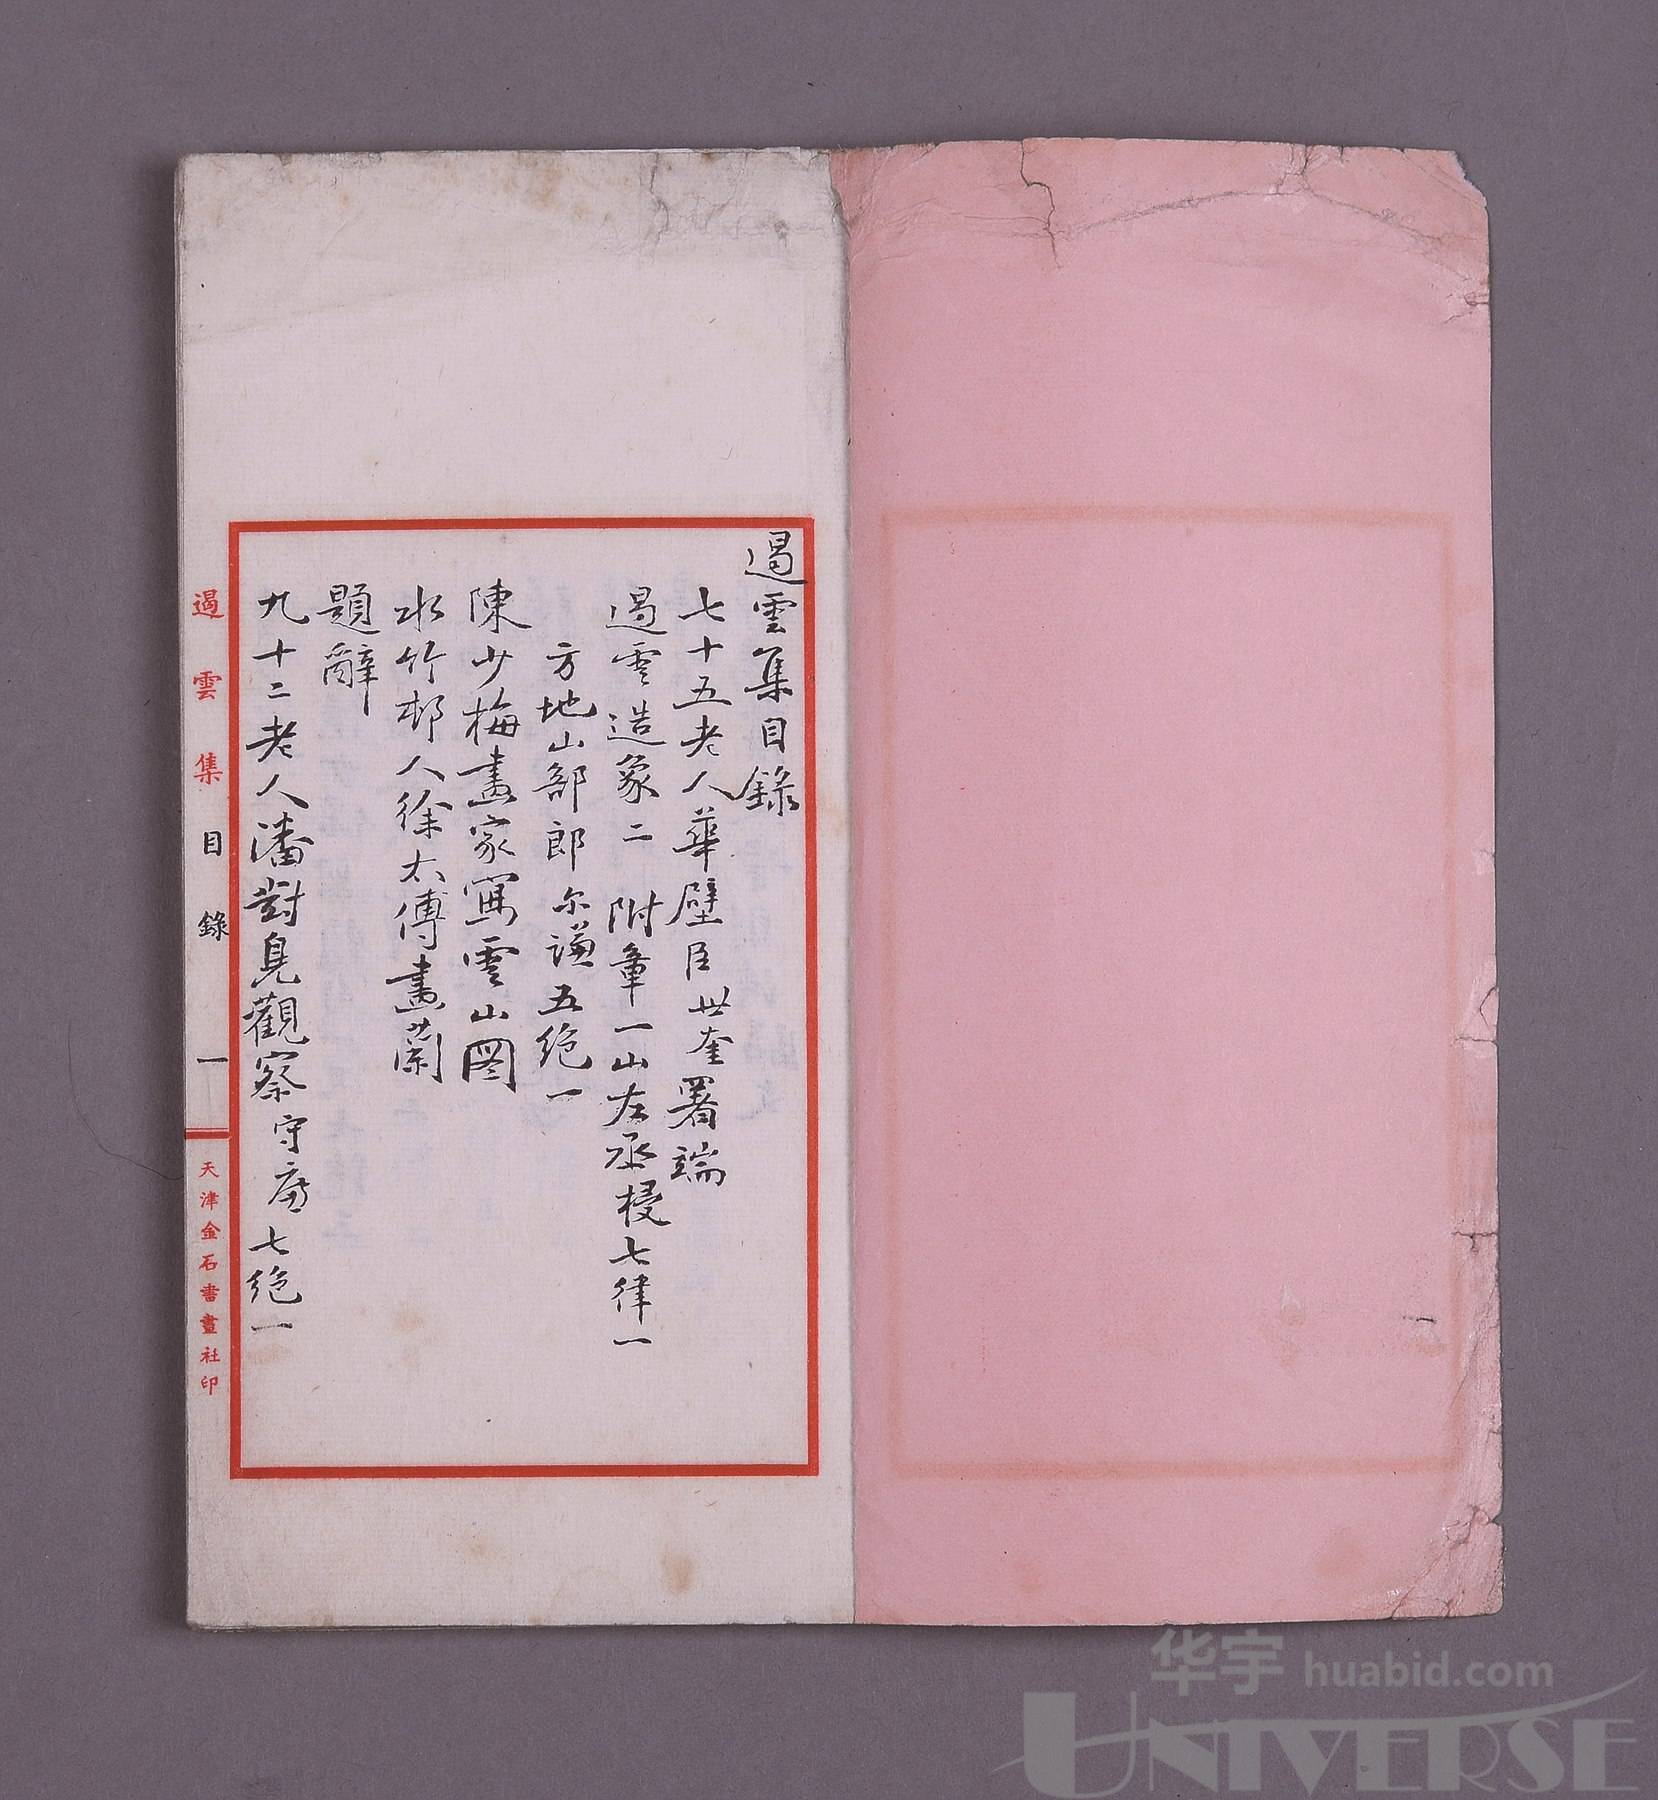 遏雲集目錄
七十五老人華壁臣世奎署端
遏雲造象二 附章一山左丞梫七律一
方地山部郎尒謙五絕一
陳少梅畫家寫雲山圖
水竹邨人徐太傅畫蘭
題辭
九十二老人潘對鳧觀察守廉七絕一
遏雲集 目錄 一
天津金石書畫社印
华宇 huabid.com
UNIVERSE